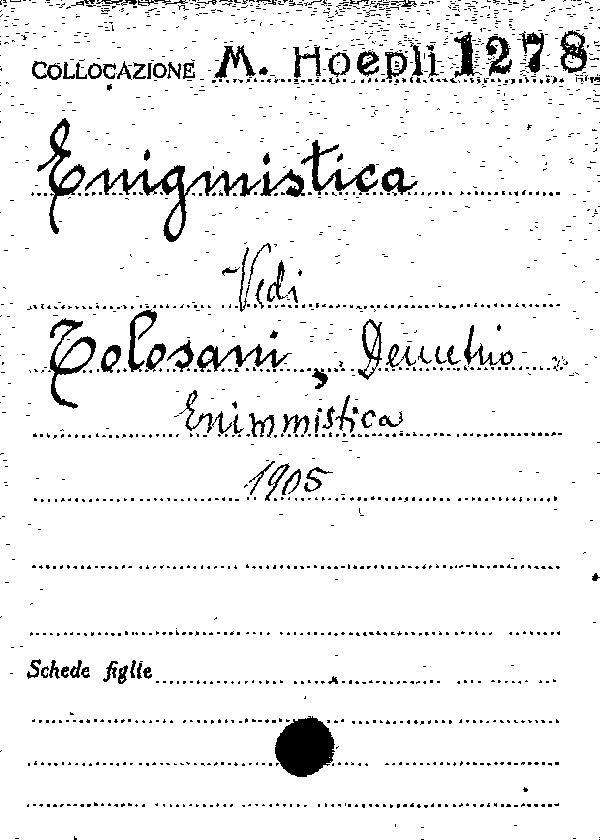 COLLOCAZIONE M. Hoepli 1278
Enigmistica
Vedi
Tolosani, Demetrio
Enimmistica
1905
Schede figlie